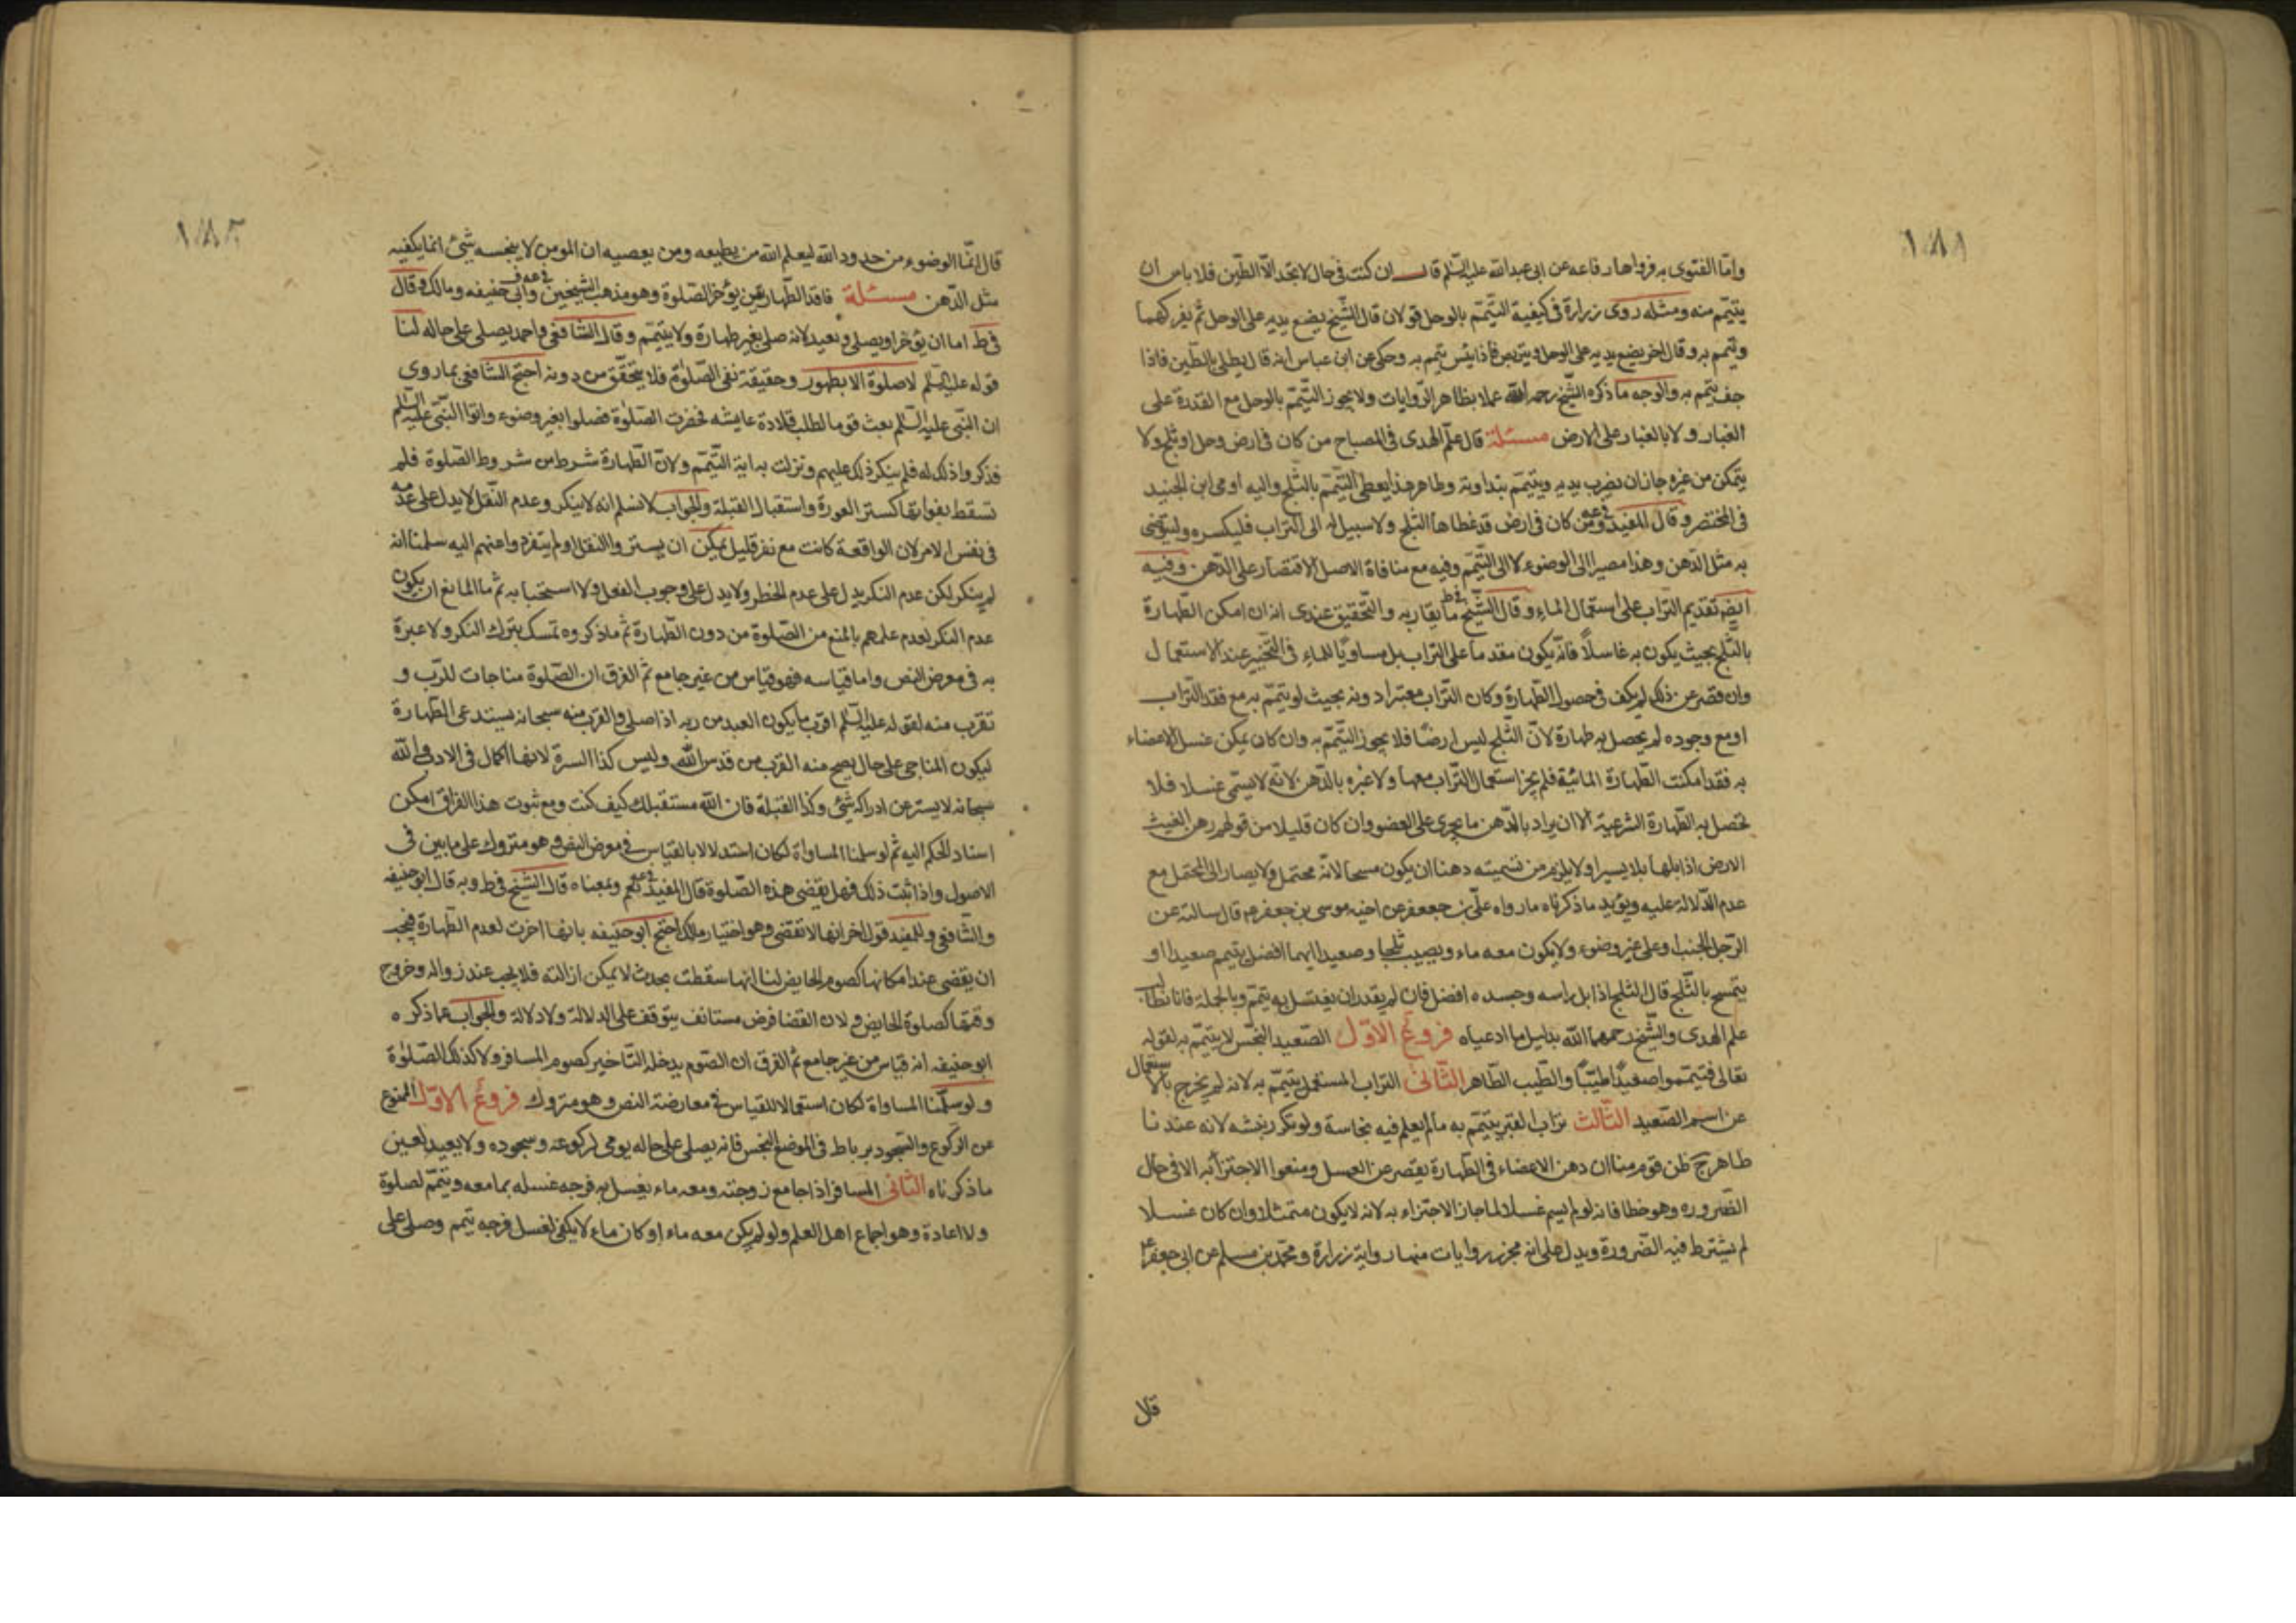 ١٨١
وامّا الفتوى به فرواها رفاعه عن ابى عبدالله عليه السّلم قال ان كنت فى حال لا تجد الّا الطّين فلا باس ان
يتيمّم منه ومثله روى زرارة فى كيفية التيّمّم بالوحل قولان قال الشّيخ يضع يديه على الوحل ثم يفركهما
ويتمم به وقال اخر يضع يديه على الوحل ويتربص فاذا يبس تيمم به وحكى عن ابن عباس انه قال يطلى بالطّين فاذا
جف تيمم به والوجه ما ذكره الشّيخ رحمه الله عملا بظاهر الرّوايات ولا يجوز التّيمّم بالوحل مع القدرة على
الغبار ولا بالغبار على الارض مسئلة قال علم الهدى فى المصباح من كان فى ارض وحل او ثلج ولا
يتمكن من غيره جاز ان يضرب يديه ويتيمّم بنداوته وظاهر هذا يعطى التّيمّم بالثّلج واليه اومى ابن الجنيد
فى المختصر وقال المفيد فى عه ومن كان فى ارض قد غطاها الثّلج ولا سبيل له الى التراب فليكسره وليتوضى
به مثل الدّهن وهذا مصير الى الوضوء لا الى التّيمّم وفيه مع منافاة الاصل الاقتصار على الدّهن وفيه
ايضٍ تقديم التراب على استعمال الماء وقال الشّيخ فى ط ما يقاربه والتّحقيق عندى انه ان امكن الطّهارة
بالثّلج بحيث يكون به غاسلاً فانّه يكون مقدما على التراب بل مساويًا للماء فى التّخيير عند الاستعمال
وان قصر عن ذلك لم يكف فى حصول الطّهارة وكان التّراب معتبرا دونه بحيث لو يتيمّم به مع فقد التّراب
او مع وجوده لم يحصل به طهارة لانّ الثّلج ليس ارضًا فلا يجوز التيّمّم به وان كان يمكن غسل الاعضاء
به فقد امكنت الطّهارة المائيّة فلم يجز استعمال التّراب معها ولا عبرة بالدّهن لانّه لا يسمّى غسلا فلا
تحصل به الطّهارة الشرعية الا ان يراد بالدّهن ما يجرى على العضو وان كان قليلا من قولهم دهن الغيث
الارض اذا بلها بلا يسيرا ولا يلزم من تسميته دهنا ان يكون مسحا لانّه محتمل ولا يصار الى المحتمل مع
عدم الدّلالة عليه ويؤيد ما ذكرناه ما رواه علىّ بن جعفر عن اخيه موسى بن جعفر عم قال سالته عن
الرّجل الجنب او على غير وضوء ولا يكون معه ماء ويصيب ثلجا وصعيدا ايهما افضل يتيمم صعيدا او
يتمسح بالثّلج قال الثلج اذا بل راسه وجسده افضل فان لم يقدر ان يغتسل به تيتمّم وبالجملة فانا نطالب
علم الهدى والشّيخ رحمهما الله بدليل ما ادعياه فروعٌ الاوّل الصّعيد النّجس لا يتيمّم به لقوله
تعالى فتيمّموا صعيدًا طيّبًا والطّيب الطّاهر الثّانى التراب المستعمل يتيمّم به لانه لم يخرج بالاستعمال
عن اسم الصّعيد الثّالث تراب القبر يتيمّم به ما لم يعلم فيه نجاسة ولو تكرر نبشه لانه عندنا
طاهر ح ظن قوم منا ان دهن الاعضاء فى الطّهارة يقصر عن الغسل ومنعوا الاجتزاء به الا فى حال
الضّروره وهو خطا فانه لو لم يسم غسلا لما جاز الاجتزاء به لانه لا يكون متمثلا وان كان غسلا
لم يشترط فيه الضّرورة ويدل على انه مجز روايات منها رواية زرارة ومحّمد بن مسلم عن ابى جعفر ع
قال
١٨٢
قال انّما الوضوء من حدود الله ليعلم الله من يطيعه ومن يعصيه ان المومن لا ينجسه شىْ انما يكفيه
مثل الدّهن مسئلة فاقد الطّهارتين يؤخر الصّلوة وهو مذهب الشيخين فى عه وابى حنيفه ومالك وقال
فى ط اما ان يؤخر او يصلى ويعيد لانه صلى بغير طهارة ولا يتيمّم وقال الشافعى واحمد يصلى على حاله لنا
قوله عليه السّلم لا صلوة الا بطهور وحقيقته نفى الصّلوة فلا يتحقّق من دونه احتج الشّافعى بما روى
ان النّبى عليه السّلم بعث قوما لطلب قلادة عايشه فحضرت الصّلوة فصلوا بغير وضوء واتوا النّبىّ عليه السّلم
فذكروا ذلك له فلم ينكر ذلك عليهم ونزلت به اية التّيمّم ولانّ الطّهارة شرط من شروط الصّلوة فلم
تسقط بفواتها كستر العورة واستقبال القبلة والجواب لا نسلم انه لا ينكر وعدم النّقل لا يدل على عدمه
فى نفس الامر لان الواقعة كانت مع نفر قليل يمكن ان يستروا النقل او لم يتفرد واعنهم اليه سلمنا انه
لم ينكر لكن عدم النكر يدل على عدم الحظر ولا يدل على وجوب الفعل ولا استحبابه ثم ما المانع ان يكون
عدم النكر لعدم علمهم بالمنع من الصّلوة من دون الطّهارة ثم ما ذكروه تمسك بترك النكر ولا عبرة
به فى معرض النص واما قياسه فهو قياس من غير جامع ثم الفرق ان الصّلوة مناجات للرّب و
تقرب منه لقوله عليه السّلم اقرب ما يكون العبد من ربه اذا صلى والقرب منه سبحانه يستدعى الطّهارة
ليكون المناجى على حال يصح منه القرب من قدس الله وليس كذا السترة لانها اكمال فى الادب والله
سبحانه لا يستر عن ادراكه شىْ وكذا القبلة فان الله مستقبلك كيف كنت ومع ثبوت هذا الفراق امكن
اسناد الحكم اليه ثم لو سلمنا المساواة لكان استدلالا بالقياس فى معرض النص وهو متروك على ما بين فى
الاصول واذا ثبت ذلك فهل يقضى هذه الصّلوة قال المفيد فى عه نعم وبمعناه قال الشّيخ فى ط وبه قال ابو حنيفه
والشّافعى وللمفيد قول اخر انها لا تقضى وهو اختيار مالك احتج ابو حنيفه بانها اخرت لعدم الطّهارة فيجب
ان يقضى عند امكانها كصوم الحايض لنا انها سقطت بحدث لا يمكن ازالته فلا يجب عند زواله وخروج
وقتها كصلوة الحايض ولان القضا فرض مستانف يتوقف على الدلالة ولا دلالة والجواب عما ذكره
ابو حنيفه انه قياس من غير جامع ثم الفرق ان الصّوم يدخله التّاخير كصوم المسافر ولا كذلك الصّلوة
ولو سلّمنا المساواة لكان استعمالا للقياس فى معارضة النص وهو متروك فروعٌ الاوّل الممنوع
عن الرّكوع والسّجود برباط فى الموضع النجس فانه يصلى على حاله يومى لركوعه وسجوده ولا يعيد لعين
ما ذكرناه الثّانى المسافر اذا جامع زوجته ومعه ماء يغسل به فرجه غسله بما معه ويتيمّم لصلوة
ولا اعادة وهو اجماع اهل العلم ولو لم يكن معه ماء او كان ماء لا يكفى لغسل فرجه تيمم وصلى على